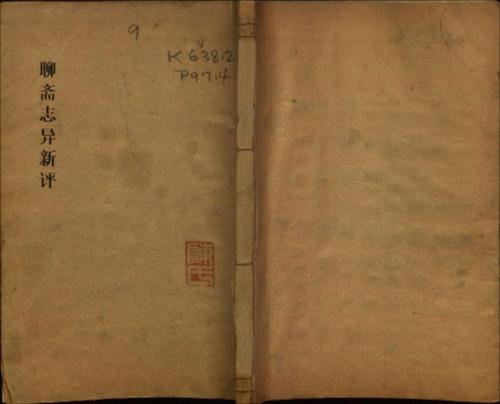 聊斋志异新评
9
v
K 638.2
P97.4